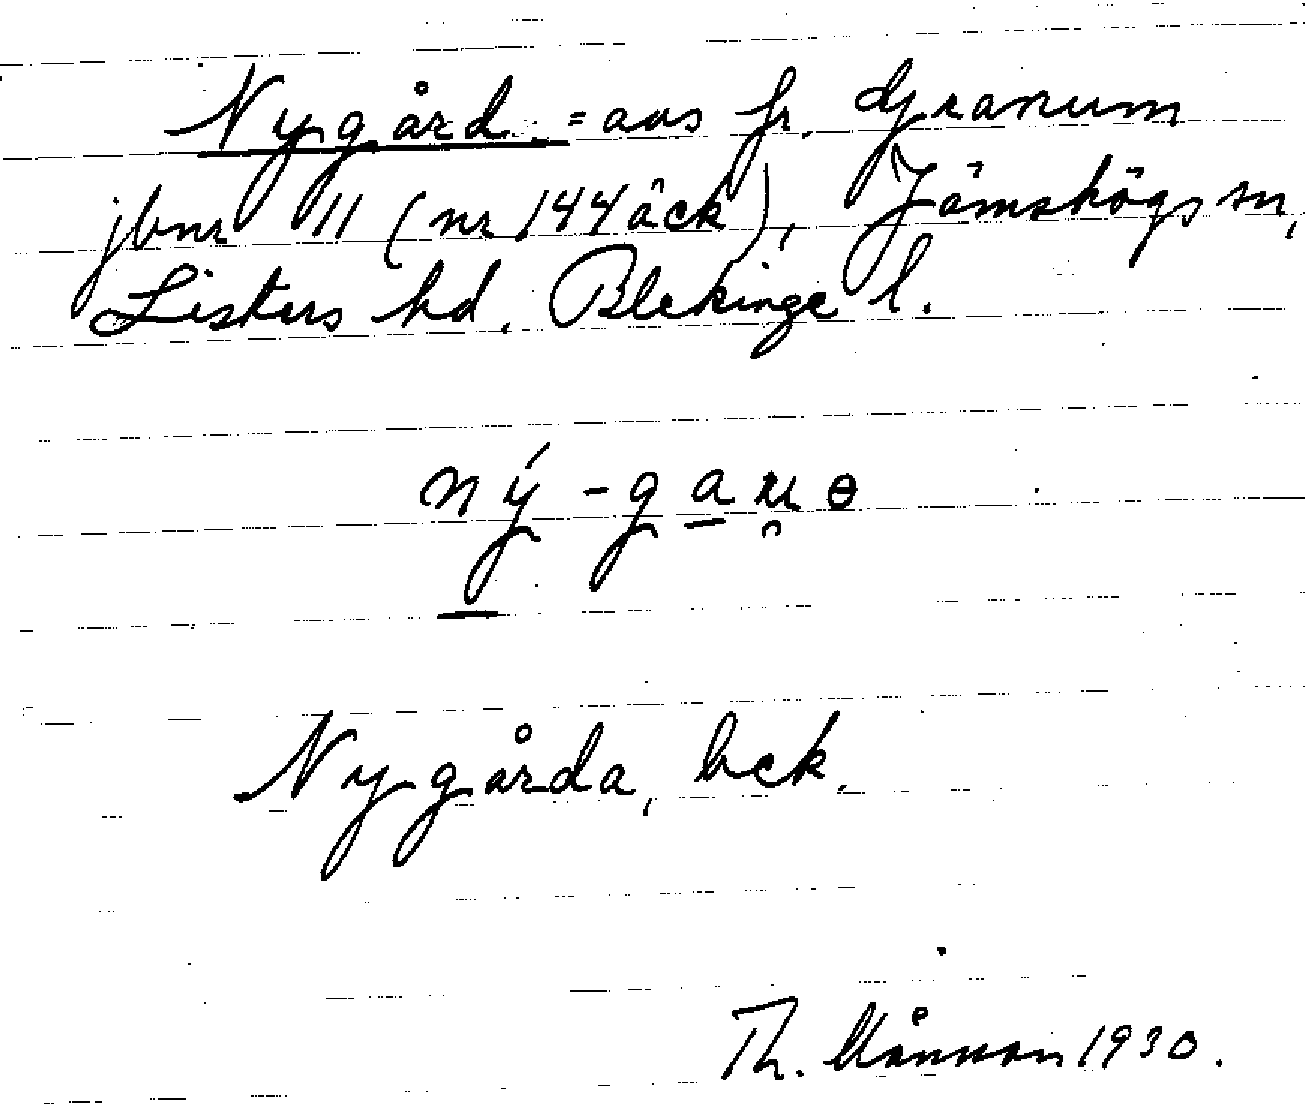 Nygård = avs fr. Granum
jbnr 11 (nr 144 äck), Jämshögs sn,
Listers hd. Blekinge l.
Nygårda, bck.
Th. 1930.